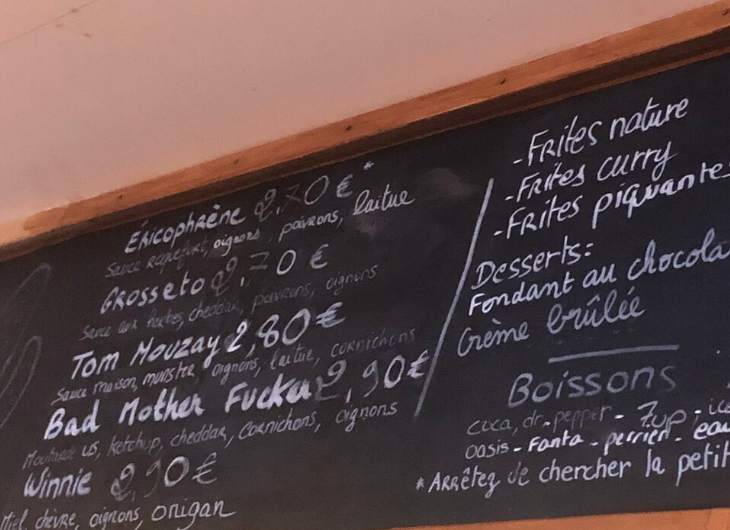 Ericophrène 2,70€*
Sauce roquefort, oignons, poivrons, laitue
Grosseto 2,70€
Sauce aux herbes, cheddar, poivrons, oignons
Tom Mouzay 2,80€
Sauce maison, munster, oignons, laitue, cornichons
Bad Mother Fucker 2,90€
Moutarde us, ketchup, cheddar, cornichons, oignons
Winnie 2,90€
Miel, chèvre, oignons, origan
-Frites nature
-Frites curry
-Frites piquantes
Desserts:
Fondant au chocola
Crème brûlée
Boissons
coca, dr. pepper - 7up - ice
oasis - Fanta - perrier - eau
*Arrêtez de chercher la petit